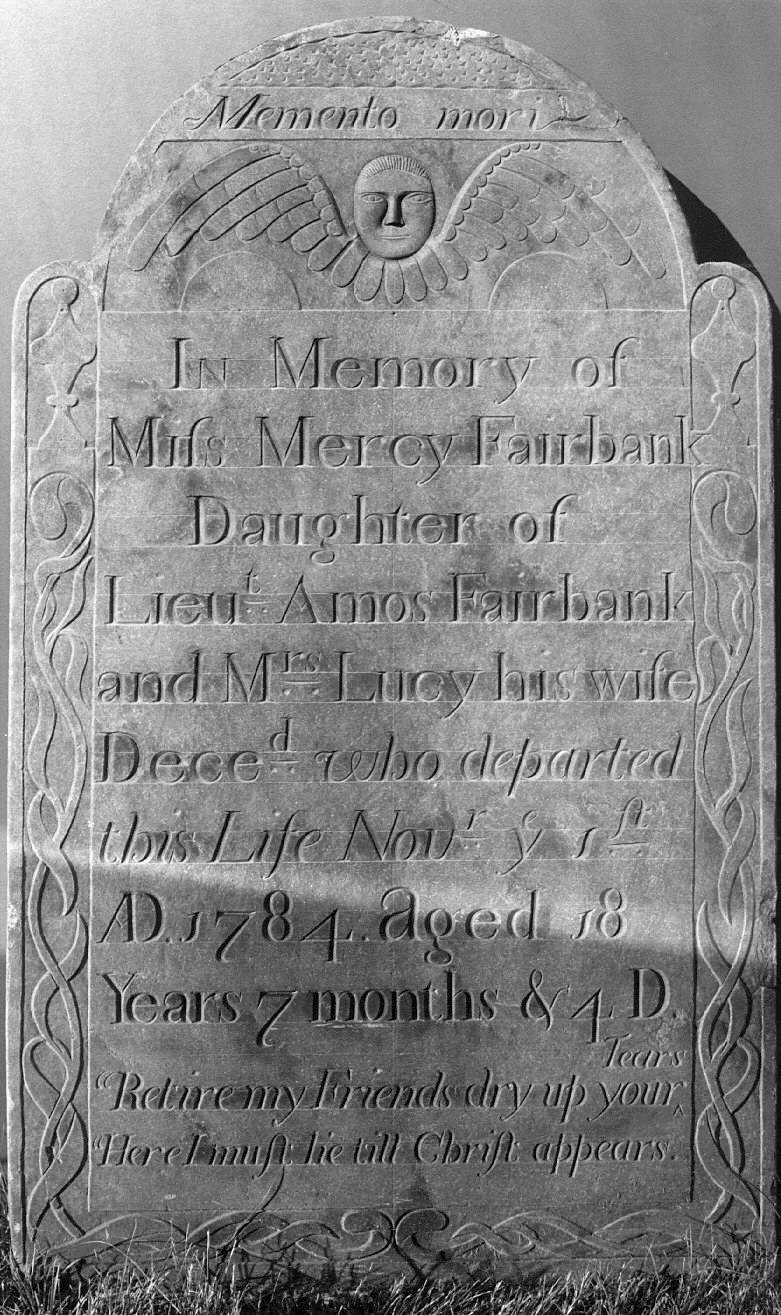 Memento mori
IN Memory of
Miſs Mercy Fairbank
Daughter of
Lieu.ᵗ Amos Fairbank
and M.ʳˢ Lucy his wife
Dece.ᵈ who departed
this Life Nov.ʳ y 1.ſᵗ
AD. 1784. aged 18
Years 7 months & 4 D.
Tears
"Retire my Friends dry up your ‸
"Here I muſt lie till Chriſt appears.